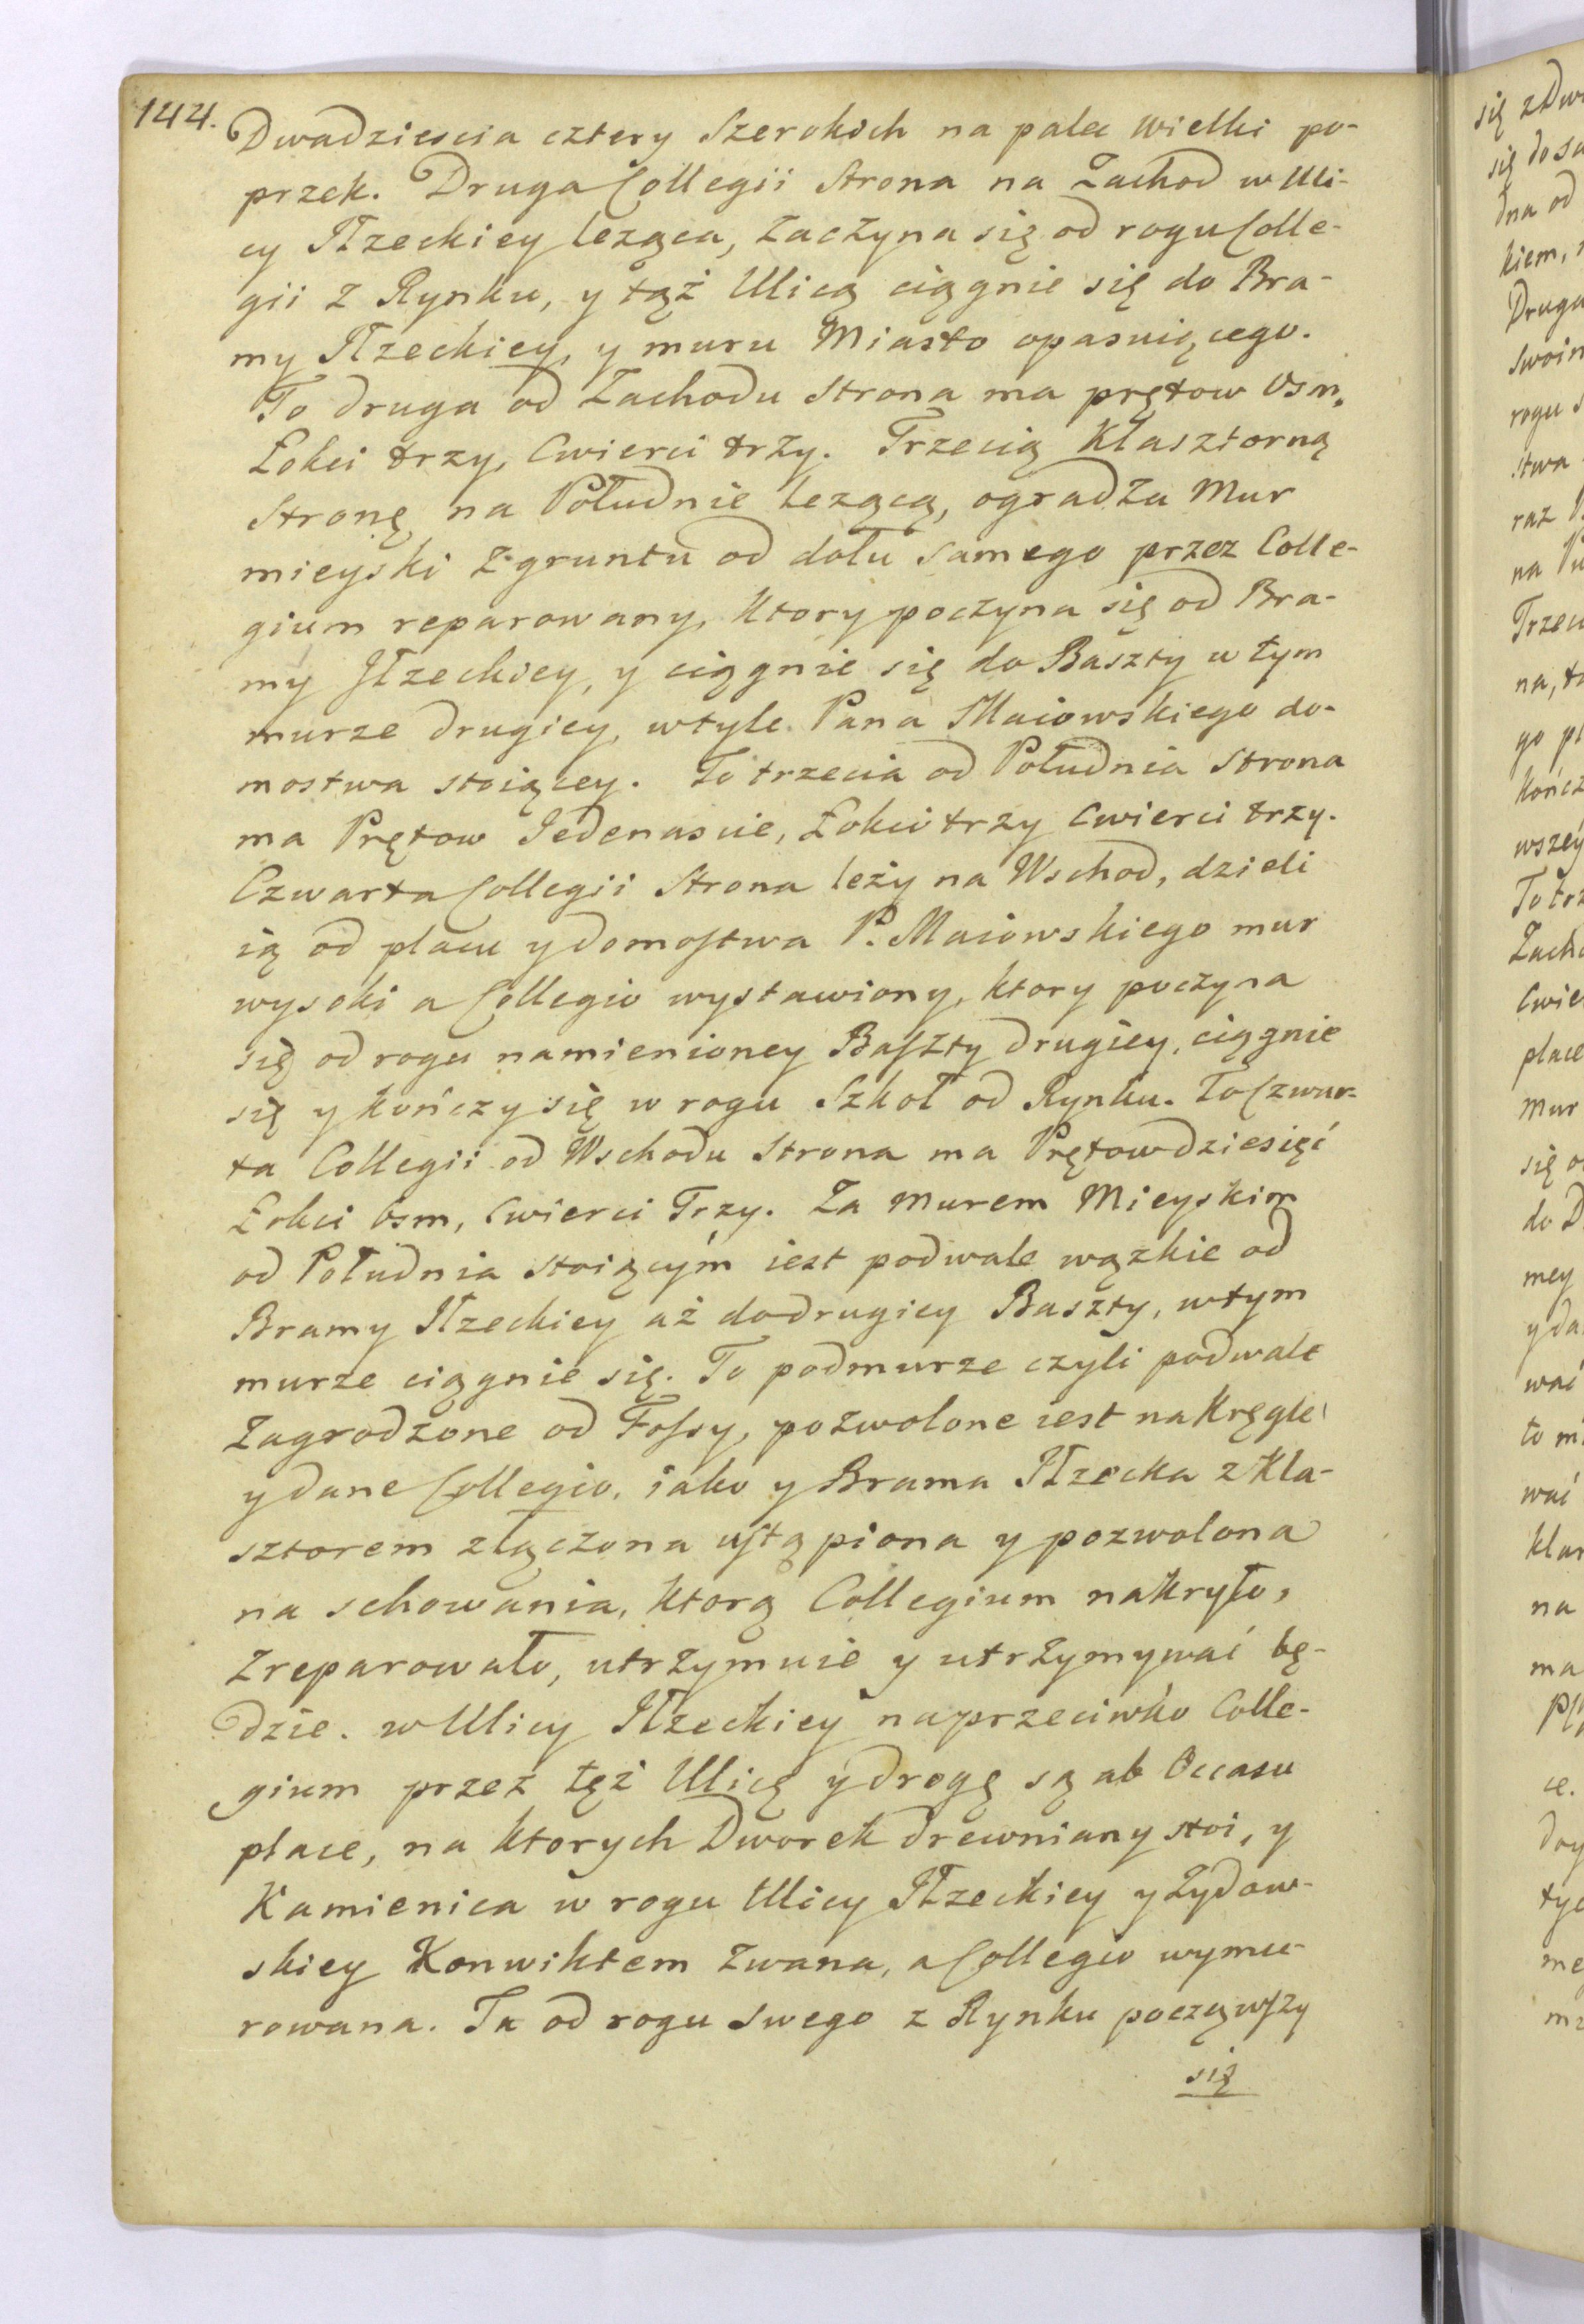 144.
Dwadziescia cztery Szerokich na palec wielki po-
przek. Druga Collegii Strona na Zachod w Uli-
cy Iłzeckiey leząca, Zaczyna się od rogu Colle-
gii z Rynku, y tąż Ulicą ciągnie się do Bra-
my Iłzeckiey, y muru Miasto opasuiącego.
To druga od Zachodu Strona ma prętow Osm,
Łokci trzy, Cwierci trzy. Trzecią Klasztorną
Stronę na Południe leżącą, ogradza Mur
mieyski z gruntu od dołu samego przez Colle-
gium reparowany, Ktory poczyna się od Bra-
my Iłzeckiey, y ciągnie się do Baszty w tym
murze drugiey, w tyle Pana Maiowskiego do-
mostwa stoiącey. Ta trzecia od Południa Strona
ma Prętow Jedenascie, Łokci trzy Cwierci trzy.
Czwarta Collegii Strona leży na Wschod, dzieli
ią od placu y domostwa P. Maiowskiego mur
wysoki a Collegio wystawiony, ktory poczyna
się od rogu namienioney Baszty drugiey, ciągnie
się y kończy się w rogu Szkoł od Rynku. Ta Czwar-
ta Collegii od Wschodu Strona ma Prętow dziesięć
Łokci Osm, Cwierci Trzy. Za Murem Mieyskim
od Południa stoiącym iest podwale wązkie od
Bramy Iłzeckiey aż do drugiey Baszty, w tym
murze ciągnie się. To podmurze czyli podwale
Zagrodzone od Fossy, pozwolone iest na Kręgle
y dane Collegio, iako y Brama Iłzecka z Kla-
sztorem złączona ustąpiona y pozwolona
na schowania, ktorą Collegium nakryło,
Zreparowało, utrzymuie y utrzymywać bę-
dzie. w Ulicy Iłzeckiey naprzeciwko Colle-
gium przez tęż Ulicę y drogę są ab Occasu
place, na ktorych Dworek drewniany stoi, y
Kamienica w rogu Ulicy Iłzeckiey y Żydow-
skiey Konwiktem Zwana, a Collegio wymu-
rowana. Ta od rogu Swego z Rynku począwszy
się